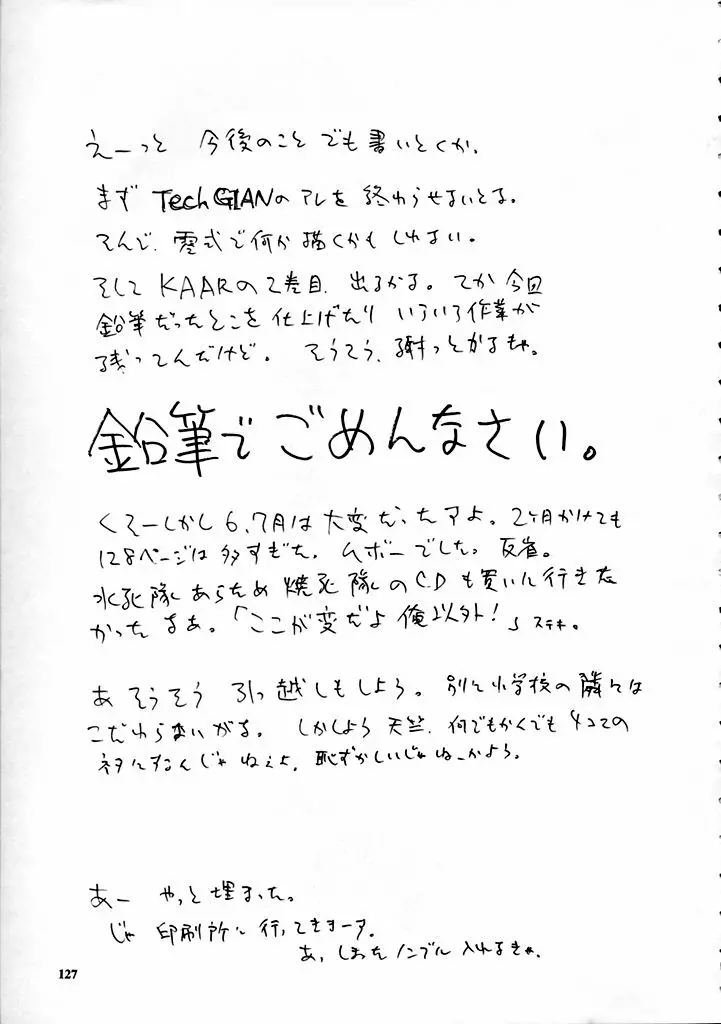 えーっと 今後のこと でも書いとくか.
まず TechGIANのアレを 終わらせないとな。
そんで、零式で何か描くかもしれない。
そして KAARの2巻目、出るかな。てか今回
鉛筆だったとこを 仕上げたり いろいろ作業が
残ってんだけど。 そうそう、謝っとかなきゃ。
鉛筆で ごめんなさい。
くそーしかし 6,7月は 大変だったすよ。2ヶ月かけても
128ページは多すぎた。ムボーでした。反省。
水死隊あらため 焼死隊のCDも買いに行きた
かったなあ。「ここが変だよ 俺以外!」ステキ。
あ そうそう 引っ越しもしよう。別に小学校の隣には
こだわらないがな。 しかしよう 天竺、何でもかくでも 4コマの
ネタにすんじゃねえよ、恥ずかしいじゃねーかよう。
あー やっと埋まった。
じゃ 印刷所に 行ってきまーす.
あ, しまった ノンブル 入れなきゃ.
127